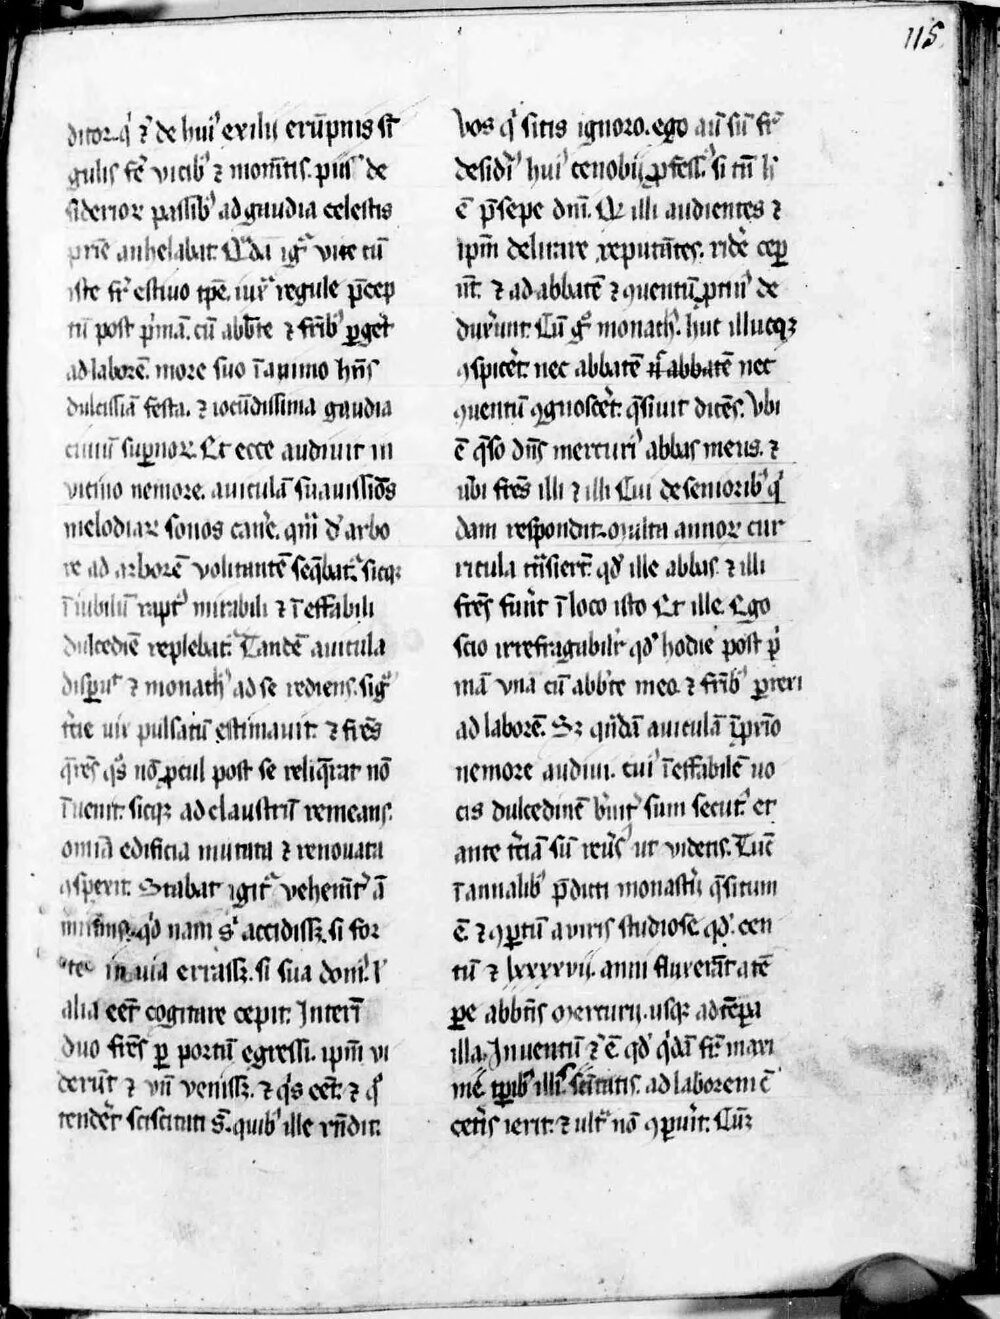 115
ditoꝝ. qͥ ⁊ de huiꝰ exilij erūpnis sī
gulis fē vicibꝰ ⁊ momētis. piusꝰ de
siderioꝝ passibꝰ ad gaudia celestis
prīe anhelabat. Qͣdā igᷓ vite cū
iste fr̄ estiuo tp̄e. iux̄ regule p̄cep
tū post pͥmā. cū abb̄te ⁊ fr̄ibꝰ ꝑgeret
ad laborē. more suo ī animo hn̄s
dulcissīa festa. ⁊ iocūdissima gaudia
ciuiū suꝑnoꝝ. Et ecce audiuit in
vicino nemore. auiculā suauissīos
melodiaꝝ sonos canēe. quī d' arbo
re ad arborē volitantē seq̄batꝰ. sicqꝫ
ī iubilū raptꝰ mirabili ⁊ ī effabili
dulcedīe replebatꝰ. Tandē auicula
disꝑuit ⁊ monachꝰ ad se rediens. sigͫ
t̄cie uix pulsatū estimauit. ⁊ frēs
q̄rēs qͦs nō ꝓcul post se reliq̄rat nō
īuenit. sicqꝫ ad claustrū remeans.
omīa edificia mutata ⁊ renouata
ꝯspexit. Stabat igitᷓ vehemēt̄ ā
mirās. qͥd nam sͥ accidissꝫ. si for
te in uia errassꝫ. si sua domꝰ. l'
alia eēt cogitare cepit. Interī
duo frēs ꝑ portū egressi. ipm̄ vi
derūt ⁊ vn̄ venissꝫ. ⁊ qͥs eēt. ⁊ qͦ
tenderēt sciscitati s̄t. quibꝰ ille rn̄dit.
Vos qͥ sitis ignoro. ego aūt sū fr̄
desid'iꝰ huiꝰ cenobij ꝓfessꝰ. si tn̄ hͦ
ē p̄sepe dnī. Qꝫ illi audientes ⁊
ipm̄ delirare reputātes. ridē ceꝑ
ūt. ⁊ ad abbatē ⁊ ꝯuentū ꝓtinꝰ de
duxerunt. Cū gͦ monachꝰ. huc illucqꝫ
ꝯspicēt. nec abbatē abbatē nec
ꝯuentū ꝯgnoscēt. q̄siuit dicēs. Vbi
ē q̄so dn̄s mercuriꝰ abbas meus. ⁊
ubi frēs illi ⁊ illi Cui de senioribꝰ qͥ
dam respondit. Multa annoꝝ cur
ricula trāsierūt. qd' ille abbas. ⁊ illi
frēs fuer̄t ī loco isto Et ille. Ego
scio irrefragabilīt qd' hodie post pͥ
mā vna cū abb̄te meo. ⁊ fr̄ibꝰ ꝑrexi
ad laborē. Sꝫ qn̄dā auiculā ī ꝓxīo
nemore audiui. cuiꝰ ī effabilē uo
cis dulcedinē b̄uitꝰ sum secutꝰ. et
ante t̄ciā sū reūsꝰ ut videtis. Tūc
ī annalibꝰ p̄dicti monast̄ij q̄situm
ē. ⁊ ꝯꝑtū a viris studiose qd'. cen
tū ⁊ lxxxxvij. anni fluxerāt a tē
ꝑe abb̄tis Mercurij. usqꝫ ad tēꝑa
illa. Inuentū ⁊ ē qd' qͥdā fr̄ maxi
mē tꝑibꝰ illiꝰ sc̄itatis. ad laborem cū
cet̄is ierit. ⁊ ultͣ nō ꝯꝑuit. Cūqꝫ